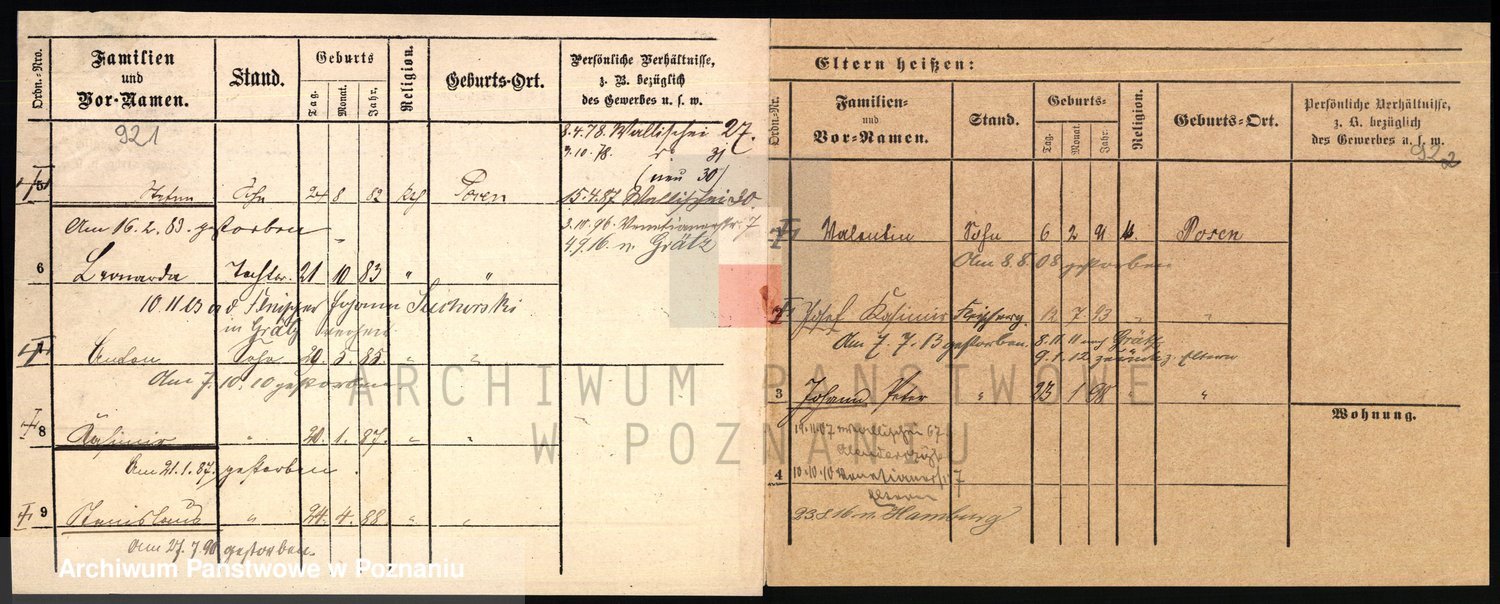 Ordn.-Nro.
Familien und Vor-Namen.
Stand.
Geburts
Tag.
Monat.
Jahr.
Religion.
Geburts-Ort.
Persönliche Verhältnisse, z. B. bezüglich des Gewerbes u. s. w.
921
8.4.78. Wallischei 27.
3.10.78. 31
(neu 30)
5 Sohn 24 8 82 kth Posen
15.4.87. Wallischei 30.
Am 16.2.83. gestorben
3.10.96. Venetianerstr. 7
4.9.16. n. Grätz
6 Leonarda Tochter. 21 10 83 " "
10.11.03 Johann
in Grätz
7 Anton Sohn 20. 5. 85. " "
Am 7.10.10 gestorben
8 Kasimir " 20. 1. 87. " "
Am 21.1.87. gestorben.
9 Stanislaus " 24. 4. 88 " "
Am 27.7.90 gestorben.
Eltern heißen:
Ordn.-Nr.
Familien- und Vor-Namen.
Stand.
Geburts-
Tag-
Monat-
Jahr-
Religion.
Geburts-Ort.
Persönliche Verhältnisse, z. B. bezüglich des Gewerbes u. s. w.
922
Valentin Sohn 6 2 91 k. Posen
Am 8.8.08 gestorben
Josef Kasimir 12 7 93 " "
Am 7.7.13 gestorben. 8.11.11 nach Grätz
9.1.12 zurück z. Eltern
3 Johann Peter " 23 1 98 " "
19.11.07 Wallischei 67
4 10.10.10 Venetianerstr 7
Eltern
23.8.16 n. Hamburg
Wohnung.
ARCHIWUM PAŃSTWOWE
W POZNANIU
Archiwum Państwowe w Poznaniu